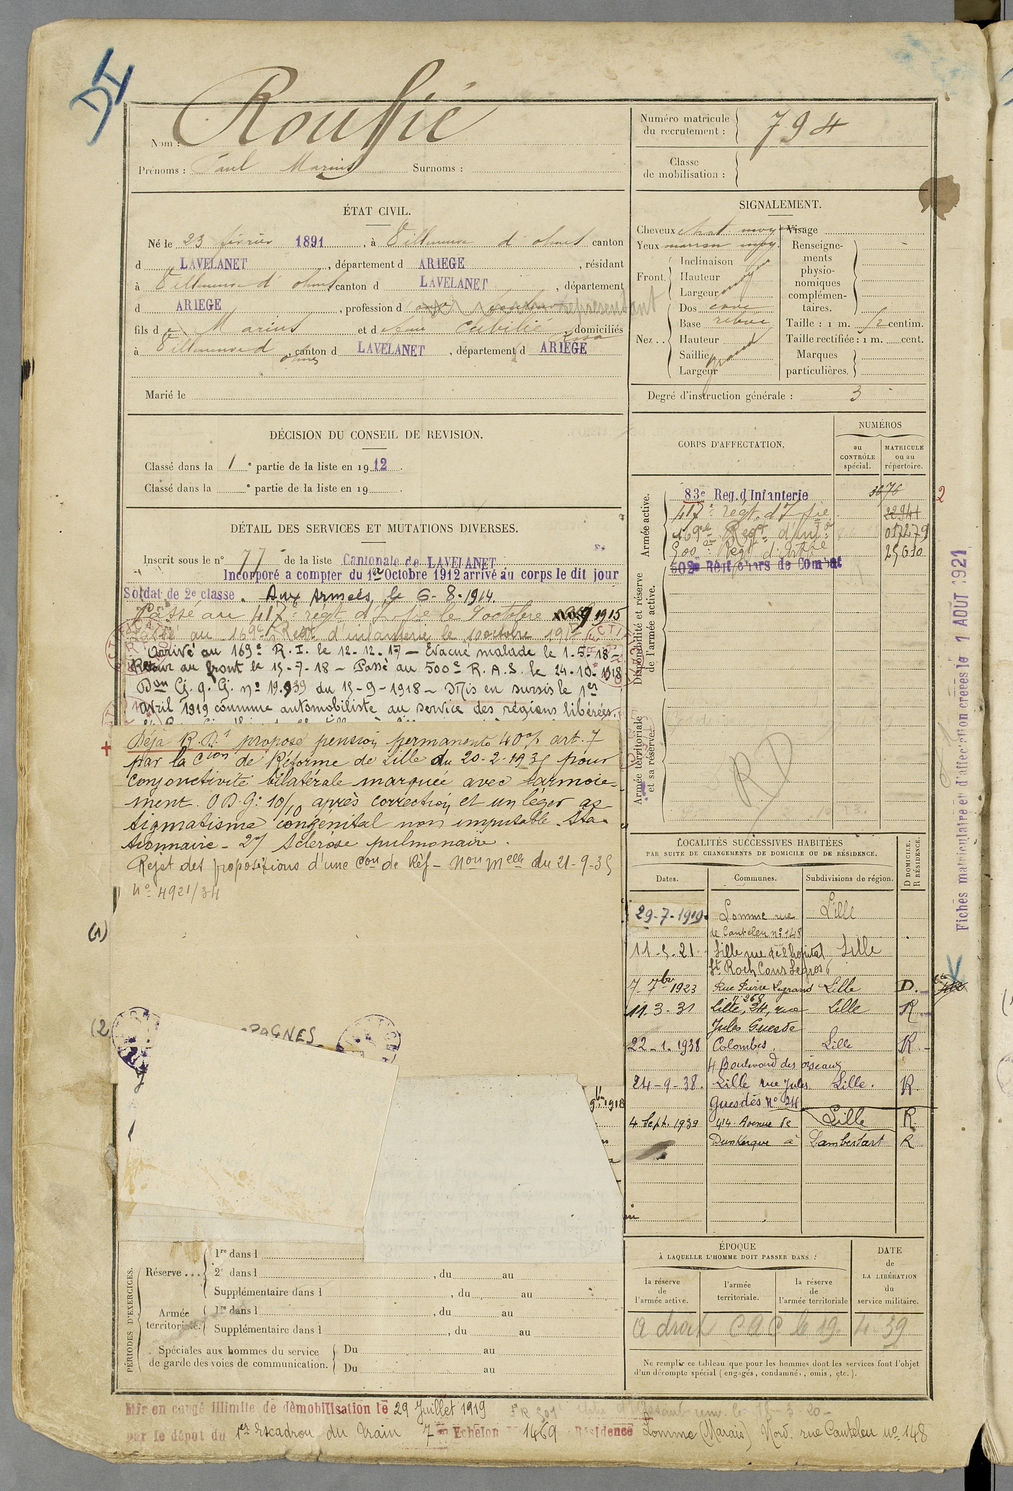 Nom : Rouffié
Prénoms : Paul Marius Surnoms :
Numéro matricule
du recrutement : 794
Classe
de mobilisation :
ÉTAT CIVIL.
Né le 23 février 1891, à Villeneuve d'olmes canton
d LAVELANET, département d ARIEGE, résidant
à Villeneuve d'olmes canton d LAVELANET, département
d ARIEGE, profession d représentant
fils de Marius et d domiciliés
à Villeneuve d olmes canton d LAVELANET, département d ARIEGE
Marié le
SIGNALEMENT.
Cheveux chat moy Visage
Yeux marron moy. Renseigne-
ments
physio-
nomiques
complémen-
taires.
Front. Inclinaison
Hauteur
Largeur
Nez . . Dos cave
Base relevée
Hauteur
Saillie
Largeur grand
Taille : 1 m. 52 centim.
Taille rectifiée : 1 m. cent.
Marques
particulières.
Degré d'instruction générale : 3
DÉCISION DU CONSEIL DE REVISION.
Classé dans la 1e partie de la liste en 1912.
Classé dans la e partie de la liste en 19
DÉTAIL DES SERVICES ET MUTATIONS DIVERSES.
Inscrit sous le n° 77 de la liste Cantonale de LAVELANET
Incorporé a compter du 1er Octobre 1912 arrivé au corps le dit jour
Soldat de 2e classe. Aux Armées, le 6-8-1914.
Passé au 417e régt d'Inf ie le 9 octobre 1915
Passé au 169e Regt d'infanterie le 10 octobre 1917
Arrivé au 169e R.I. le 12-12-17 – Evacué malade le 1-5-18 –
Retour au front le 15-7-18 – Passé au 500e R.A.S. le 24-10-1918
Don G. q. G. no 19.939 du 15-9-1918 – Mis en sursis le 1er
Avril 1919 comme automobiliste au service des régions libérées.
Déjà R.D.t proposé pension permanente 40% art. 7
par la Cion de Réforme de Lille du 20-2-1935 pour
conjonctivite bilatérale marquée avec larmoie-
ment. O D g: 10/10 après correction et un léger as-
tigmatisme congénital non imputable. Sta-
tionnaire – 2°/ Sclérose pulmonaire.
Rejet des propositions d'une Con de Réf – Non Melle du 21-9-35
N° 4921/34
(1)
(2)
PAGNES
1918
CORPS D'AFFECTATION.
NUMÉROS
au
CONTRÔLE
spécial.
MATRICULE
ou au
répertoire.
Armée active.
83e Reg. d'Infanterie 3676
417e régt. d'Inf ie 22941
169e Regt d'Infie 017279
500e Regt d'artie 25610
502e Régt chars de Combat
2
Disponibilité et réserve
de l'armée active.
Armée territoriale
et sa réserve.
RD
Fiches matriculaire et d'affectation créées le 1 AOUT 1921
LOCALITÉS SUCCESSIVES HABITÉES
PAR SUITE DE CHANGEMENTS DE DOMICILE OU DE RÉSIDENCE.
Dates. Communes. Subdivisions de région. D DOMICILE. R RÉSIDENCE.
29-7-1919 Lomme rue Lille
de Canteleu n° 148
11-5-21 Lille rue de l'hopital Lille
St Roch Cour Legros 6
7-7bre 1923 Rue Pierre Legrand Lille D.
n° 268
11.3.31 Lille, 24, rue Lille R
Jules Guesde
22-1-1938 Colombes, Lille R
4 Boulevard des oiseaux
24-9-38. Lille rue Jules Lille. R
Guesdes N° 24
4 Sept. 1939 414 Avenue de Lille R
Dunkerque à Lambersart R
PÉRIODES D'EXERCICES.
Réserve . . . 1re dans l
2e dans l , du au
Supplémentaire dans l , du au
Armée
territoriale. 1re dans l , du au
Supplémentaire dans l , du au
Spéciales aux hommes du service
de garde des voies de communication. Du au
Du au
ÉPOQUE
À LAQUELLE L'HOMME DOIT PASSER DANS :
la réserve
de
l'armée active.
l'armée
territoriale.
la réserve
de
l'armée territoriale
DATE
de
LA LIBÉRATION
du
service militaire.
a droit CAC le 19-4-39
Ne remplir ce tableau que pour les hommes dont les services font l'objet
d'un décompte spécial (engagés, condamnés, omis, etc.).
Mis en congé illimité de démobilisation le 29 Juillet 1919
par le dépot du 1er Escadron du Train 7e Echelon 1469 Résidence Lomme (Marais) Nord. rue Canteleu no 148